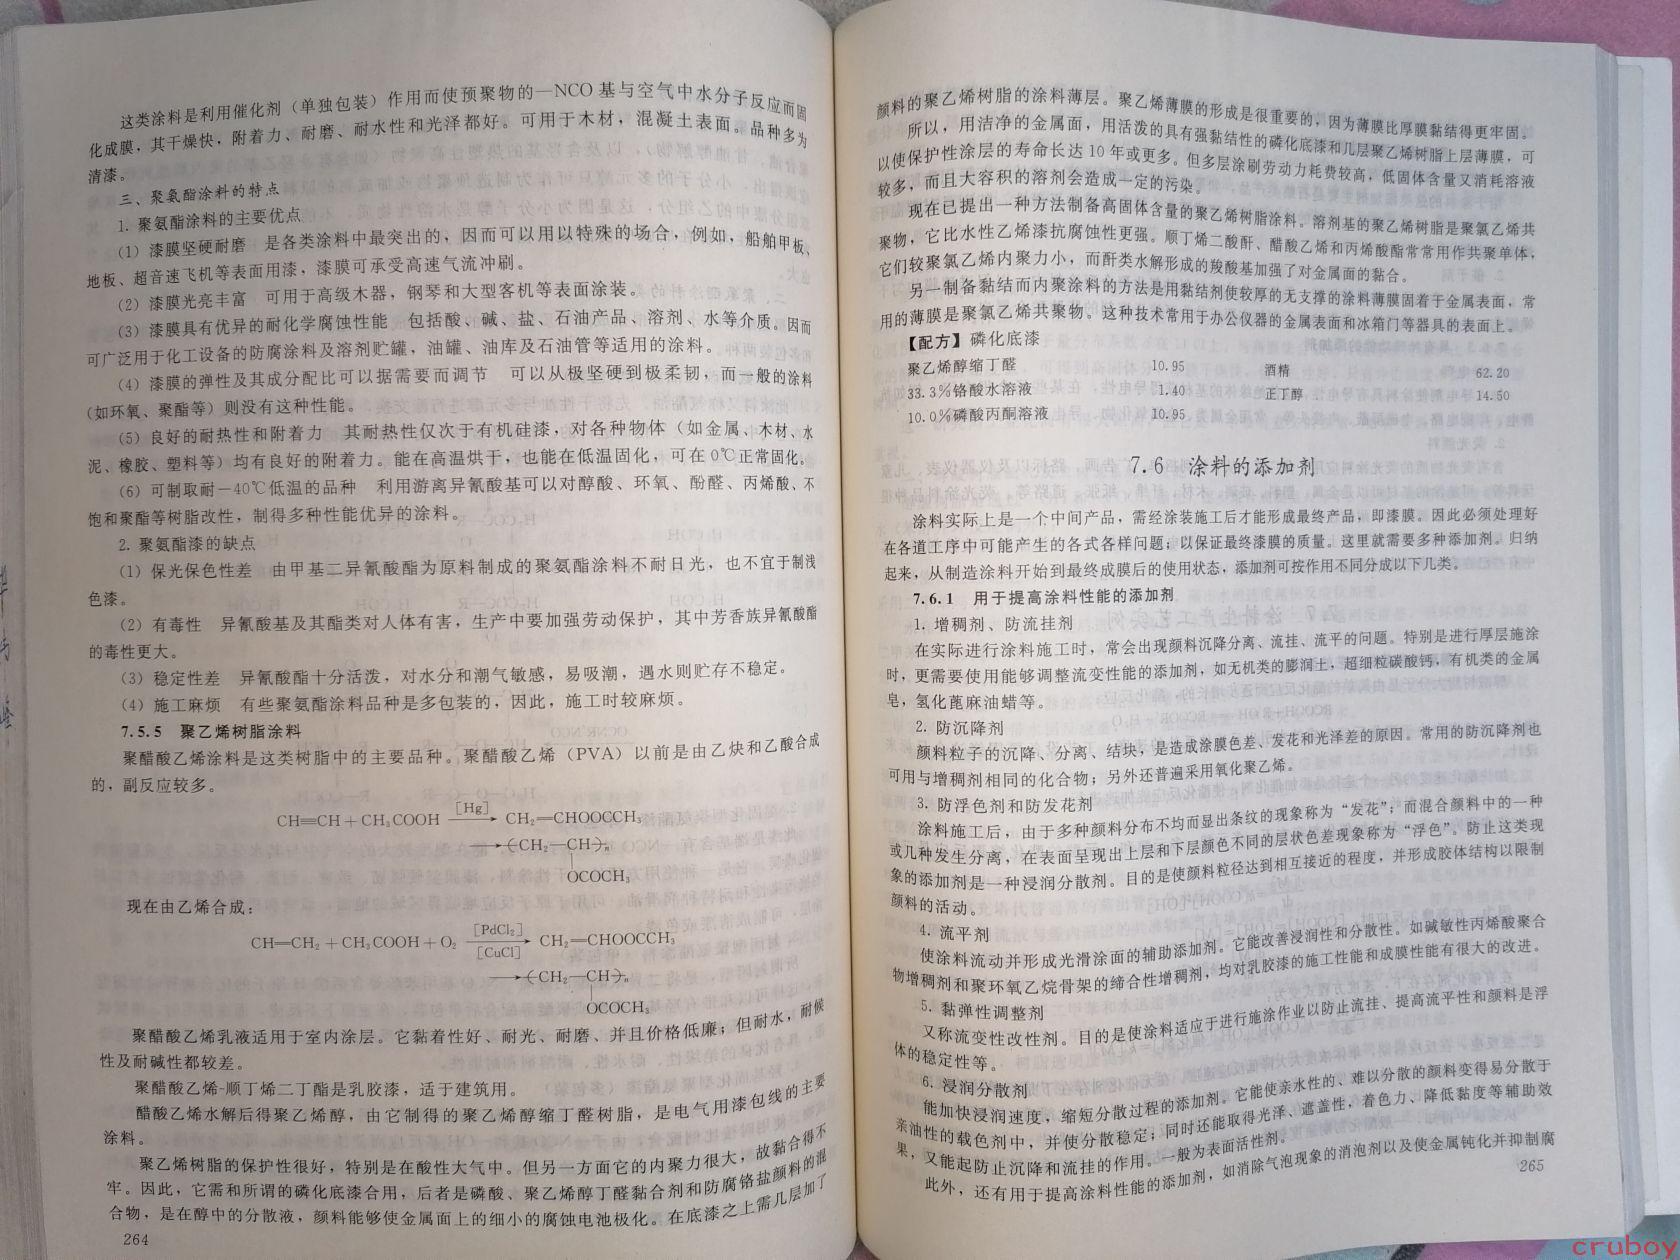 这类涂料是利用催化剂（单独包装）作用而使预聚物的—NCO 基与空气中水分子反应而固
化成膜，其干燥快，附着力、耐磨、耐水性和光泽都好。可用于木材，混凝土表面。品种多为
清漆。
三、聚氨酯涂料的特点
1. 聚氨酯涂料的主要优点
(1) 漆膜坚硬耐磨　是各类涂料中最突出的，因而可以用以特殊的场合，例如，船舶甲板、
地板、超音速飞机等表面用漆，漆膜可承受高速气流冲刷。
(2) 漆膜光亮丰富　可用于高级木器，钢琴和大型客机等表面涂装。
(3) 漆膜具有优异的耐化学腐蚀性能　包括酸、碱、盐、石油产品、溶剂、水等介质。因而
可广泛用于化工设备的防腐涂料及溶剂贮罐，油罐、油库及石油管等适用的涂料。
(4) 漆膜的弹性及其成分配比可以据需要而调节　可以从极坚硬到极柔韧，而一般的涂料
(如环氧、聚酯等) 则没有这种性能。
(5) 良好的耐热性和附着力　其耐热性仅次于有机硅漆，对各种物体（如金属、木材、水
泥、橡胶、塑料等）均有良好的附着力。能在高温烘干，也能在低温固化，可在 0℃正常固化。
(6) 可制取耐－40℃低温的品种　利用游离异氰酸基可以对醇酸、环氧、酚醛、丙烯酸、不
饱和聚酯等树脂改性，制得多种性能优异的涂料。
2. 聚氨酯漆的缺点
(1) 保光保色性差　由甲基二异氰酸酯为原料制成的聚氨酯涂料不耐日光，也不宜于制浅
色漆。
(2) 有毒性　异氰酸基及其酯类对人体有害，生产中要加强劳动保护，其中芳香族异氰酸酯
的毒性更大。
(3) 稳定性差　异氰酸酯十分活泼，对水分和潮气敏感，易吸潮，遇水则贮存不稳定。
(4) 施工麻烦　有些聚氨酯涂料品种是多包装的，因此，施工时较麻烦。
7.5.5　聚乙烯树脂涂料
聚醋酸乙烯涂料是这类树脂中的主要品种。聚醋酸乙烯（PVA）以前是由乙炔和乙酸合成
的，副反应较多。
CH≡CH + CH₃COOH —[Hg]→ CH₂=CHOOCCH₃
→ ⟮CH₂—CH⟯ₙ
OCOCH₃
现在由乙烯合成：
CH=CH₂ + CH₃COOH + O₂ —[PdCl₂]/[CuCl]→ CH₂=CHOOCCH₃
→ ⟮CH₂—CH⟯ₙ
OCOCH₃
聚醋酸乙烯乳液适用于室内涂层。它黏着性好、耐光、耐磨、并且价格低廉；但耐水，耐候
性及耐碱性都较差。
聚醋酸乙烯-顺丁烯二丁酯是乳胶漆，适于建筑用。
醋酸乙烯水解后得聚乙烯醇，由它制得的聚乙烯醇缩丁醛树脂，是电气用漆包线的主要
涂料。
聚乙烯树脂的保护性很好，特别是在酸性大气中。但另一方面它的内聚力很大，故黏合得不
牢。因此，它需和所谓的磷化底漆合用，后者是磷酸、聚乙烯醇丁醛黏合剂和防腐铬盐颜料的混
合物，是在醇中的分散液，颜料能够使金属面上的细小的腐蚀电池极化。在底漆之上需几层加了
264
颜料的聚乙烯树脂的涂料薄层。聚乙烯薄膜的形成是很重要的，因为薄膜比厚膜黏结得更牢固。
所以，用洁净的金属面，用活泼的具有强黏结性的磷化底漆和几层聚乙烯树脂上层薄膜，可
以使保护性涂层的寿命长达 10 年或更多。但多层涂刷劳动力耗费较高，低固体含量又消耗溶液
较多，而且大容积的溶剂会造成一定的污染。
现在已提出一种方法制备高固体含量的聚乙烯树脂涂料。溶剂基的聚乙烯树脂是聚氯乙烯共
聚物，它比水性乙烯漆抗腐蚀性更强。顺丁烯二酸酐、醋酸乙烯和丙烯酸酯常常用作共聚单体，
它们较聚氯乙烯内聚力小，而酐类水解形成的羧酸基加强了对金属面的黏合。
另一制备黏结而内聚涂料的方法是用黏结剂使较厚的无支撑的涂料薄膜固着于金属表面，常
用的薄膜是聚氯乙烯共聚物。这种技术常用于办公仪器的金属表面和冰箱门等器具的表面上。
【配方】磷化底漆
聚乙烯醇缩丁醛　10.95　酒精　62.20
33.3%铬酸水溶液　1.40　正丁醇　14.50
10.0%磷酸丙酮溶液　10.95
7.6　涂料的添加剂
涂料实际上是一个中间产品，需经涂装施工后才能形成最终产品，即漆膜。因此必须处理好
在各道工序中可能产生的各式各样问题；以保证最终漆膜的质量。这里就需要多种添加剂。归纳
起来，从制造涂料开始到最终成膜后的使用状态，添加剂可按作用不同分成以下几类。
7.6.1　用于提高涂料性能的添加剂
1. 增稠剂、防流挂剂
在实际进行涂料施工时，常会出现颜料沉降分离、流挂、流平的问题。特别是进行厚层施涂
时，更需要使用能够调整流变性能的添加剂，如无机类的膨润土，超细粒碳酸钙，有机类的金属
皂，氢化蓖麻油蜡等。
2. 防沉降剂
颜料粒子的沉降、分离、结块，是造成涂膜色差、发花和光泽差的原因。常用的防沉降剂也
可用与增稠剂相同的化合物；另外还普遍采用氧化聚乙烯。
3. 防浮色剂和防发花剂
涂料施工后，由于多种颜料分布不均而显出条纹的现象称为“发花”；而混合颜料中的一种
或几种发生分离，在表面呈现出上层和下层颜色不同的层状色差现象称为“浮色”。防止这类现
象的添加剂是一种浸润分散剂。目的是使颜料粒径达到相互接近的程度，并形成胶体结构以限制
颜料的活动。
4. 流平剂
使涂料流动并形成光滑涂面的辅助添加剂。它能改善浸润性和分散性。如碱敏性丙烯酸聚合
物增稠剂和聚环氧乙烷骨架的缔合性增稠剂，均对乳胶漆的施工性能和成膜性能有很大的改进。
5. 黏弹性调整剂
又称流变性改性剂。目的是使涂料适应于进行施涂作业以防止流挂、提高流平性和颜料是浮
体的稳定性等。
6. 浸润分散剂
能加快浸润速度，缩短分散过程的添加剂。它能使亲水性的、难以分散的颜料变得易分散于
亲油性的载色剂中，并使分散稳定；同时还能取得光泽、遮盖性，着色力、降低黏度等辅助效
果，又能起防止沉降和流挂的作用。一般为表面活性剂。
此外，还有用于提高涂料性能的添加剂，如消除气泡现象的消泡剂以及使金属钝化并抑制腐
265
cruboy